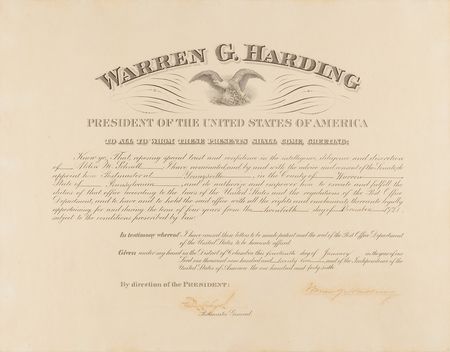 WARREN G. HARDING
PRESIDENT OF THE UNITED STATES OF AMERICA
TO ALL TO WHOM THESE PRESENTS SHALL COME, GREETING:
Know ye, That reposing special trust and confidence in the intelligence, diligence and discretion
of Helen W. I have nominated and by and with the advice and consent of the Senate do
appoint her Postmaster at Youngsville, in the County of Warren
State of Pennsylvania, and do authorize and empower him to execute and fulfill the
duties of that office according to the laws of the United States and the regulations of the Post Office
Department, and to have and to hold the said office with all the rights and emoluments thereunto legally
appertaining for and during the term of four years from the twentieth day of December 1921
subject to the conditions prescribed by law.
In testimony whereof I have caused these letters to be made patent and the seal of the Post Office Department
of the United States to be hereunto affixed.
Given under my hand in the District of Columbia this fourteenth day of January in the year of our
Lord one thousand nine hundred and twenty two and of the Independence of the
United States of America the one hundred and forty sixth
By direction of the PRESIDENT:
Warren G. Harding
Postmaster General